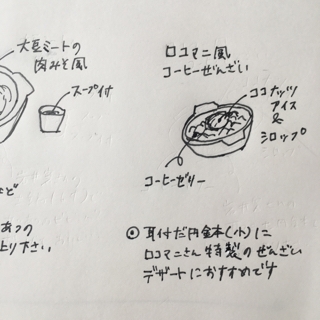 大豆ミートの
肉みそ風
スープ付
ロコマニ風
コーヒーぜんざい
ココナッツ
アイス
&
シロップ
コーヒーゼリー
など
あつの
上り下さい
◎耳付だ円金本(小)に
ロコマニさん特製のぜんざい
デザートにおすすめです